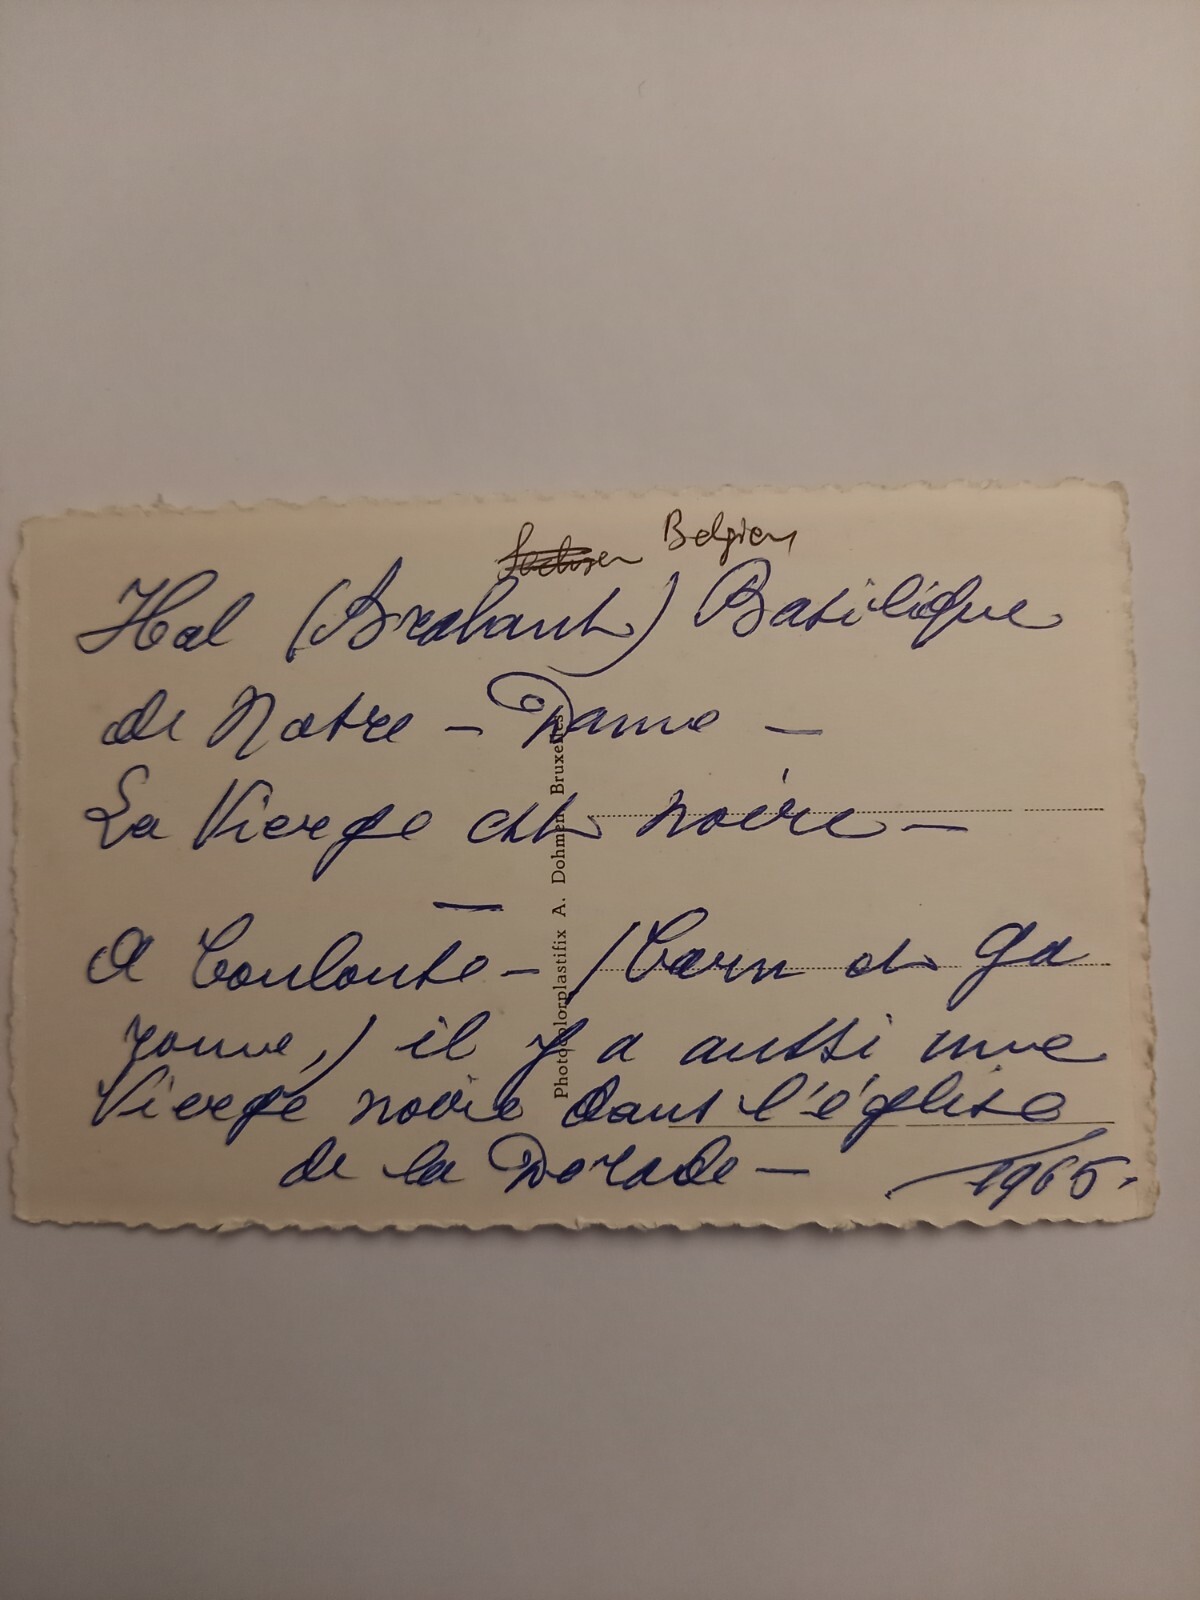 Sachsen Belgien
Hal (Brabant) Basilique
de Notre - Dame -
La Vierge est noire -
A Toulouse - (Tarn et Ga
ronne,) il y a aussi une
Vierge noire dans l'église
de la Dorade -
1965.
Photocolorplastifix A. Dohmen Bruxelles